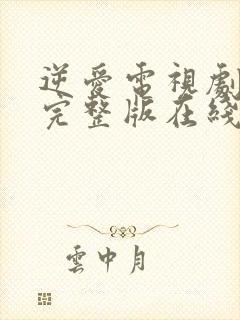 逆愛電視劇
完整版在綫
雲中月